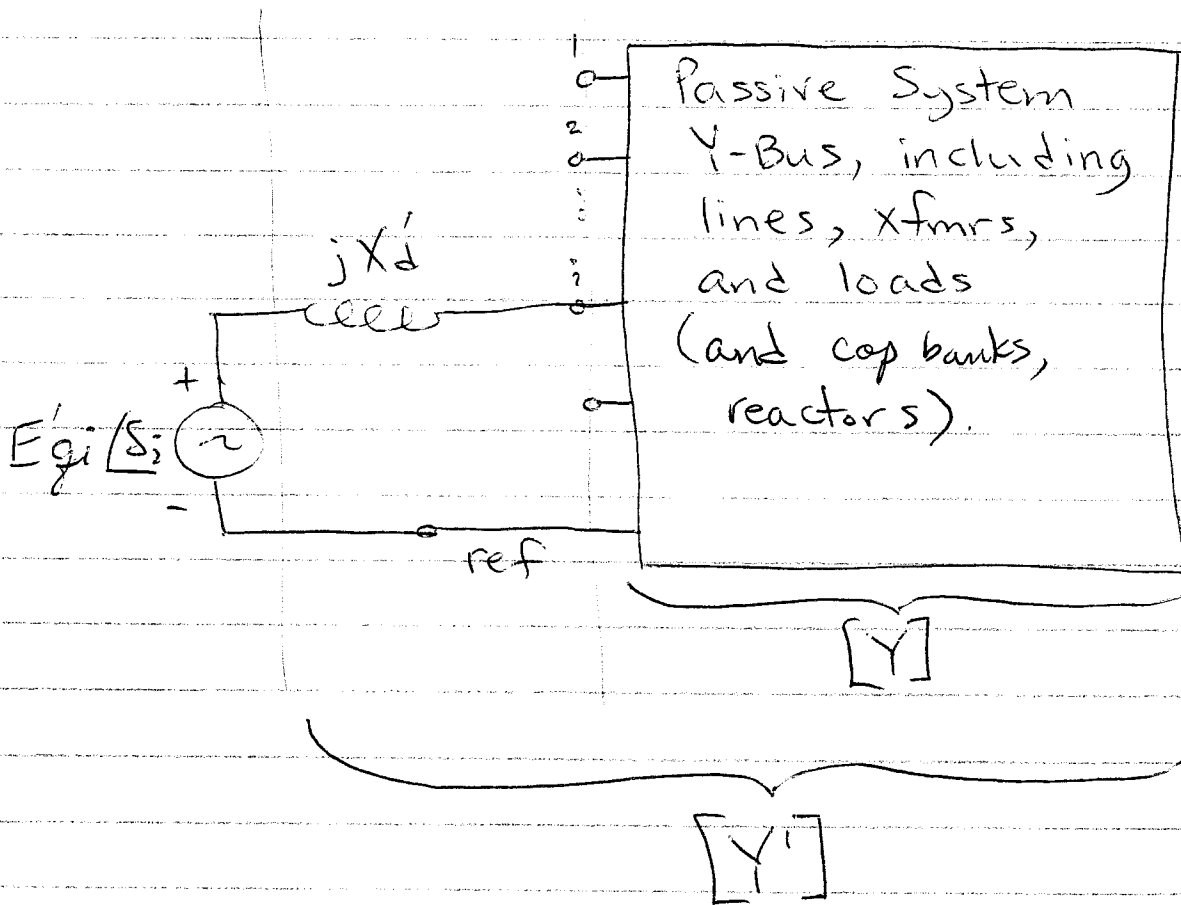 1
Passive System
2
Y-Bus, including
lines, xfmrs,
jX'd
i
and loads
(and cap banks,
reactors).
+
E'gi/δi
~
-
ref
[Y]
[Y']